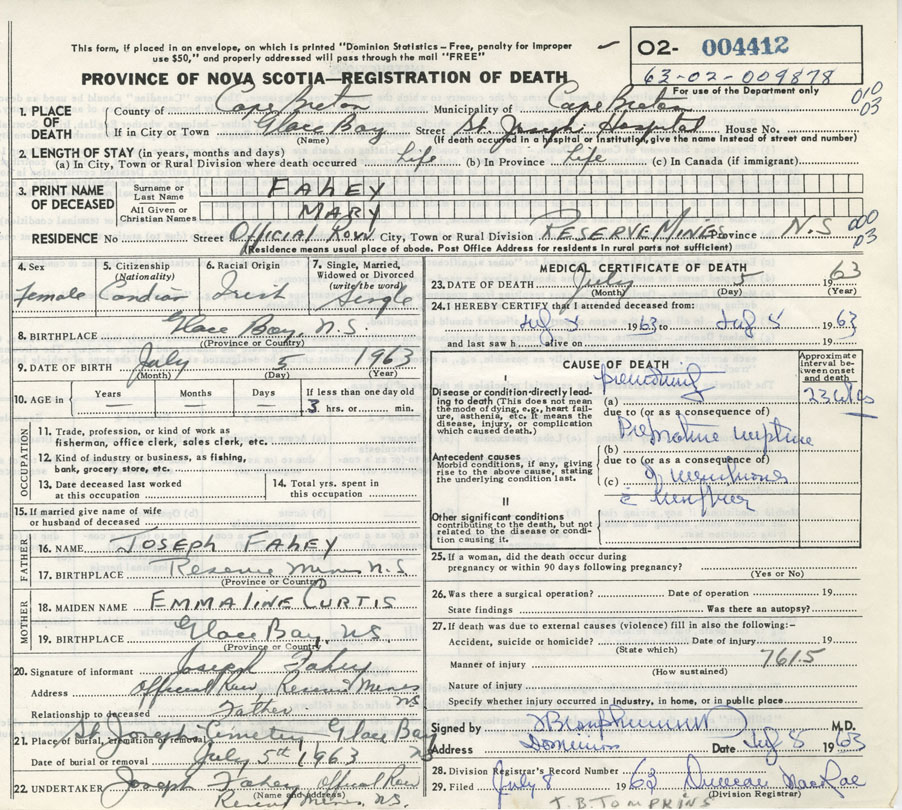 This form, if placed in an envelope, on which is printed "Dominion Statistics – Free, penalty for improper
use $50," and properly addressed will pass through the mail "FREE"
O2- 004412
63-02-009878
PROVINCE OF NOVA SCOTIA—REGISTRATION OF DEATH
For use of the Department only
010
03
1. PLACE OF DEATH
County of Cape Breton Municipality of Cape Breton
If in City or Town Glace Bay Street St Joseph Hospital House No.
(Name) (If death occurred in a hospital or institution, give the name instead of street and number)
2. LENGTH OF STAY (in years, months and days)
(a) In City, Town or Rural Division where death occurred Life (b) In Province Life (c) In Canada (if immigrant)
3. PRINT NAME OF DECEASED
Surname or Last Name FAHEY
All Given or Christian Names MARY
RESIDENCE No Street Official Row City, Town or Rural Division RESERVE MINES Province N.S
000
03
(Residence means usual place of abode. Post Office Address for residents in rural parts not sufficient)
4. Sex
Female
5. Citizenship (Nationality)
Candian
6. Racial Origin
Irish
7. Single, Married, Widowed or Divorced (write the word)
Single
8. BIRTHPLACE Glace Bay, N.S.
(Province or Country)
9. DATE OF BIRTH July 5 1963
(Month) (Day) (Year)
10. AGE in Years — Months — Days — If less than one day old
3 hrs. or min.
OCCUPATION
11. Trade, profession, or kind of work as
fisherman, office clerk, sales clerk, etc.
12. Kind of industry or business, as fishing,
bank, grocery store, etc.
13. Date deceased last worked
at this occupation
14. Total yrs. spent in
this occupation
15. If married give name of wife
or husband of deceased
FATHER
16. NAME JOSEPH FAHEY
17. BIRTHPLACE Reserve Mines N.S
(Province or Country)
MOTHER
18. MAIDEN NAME EMMALINE CURTIS
19. BIRTHPLACE Glace Bay, NS.
(Province or Country)
20. Signature of informant Joseph Fahey
Address Official Row, Reserve Mines NS
Relationship to deceased Father
21. Place of burial, cremation or removal St Joseph Cemetery Glace Bay
Date of burial or removal July 5th 1963
22. UNDERTAKER Joseph Fahey Official Row
(Name and address)
Reserve Mines, NS.
MEDICAL CERTIFICATE OF DEATH
23. DATE OF DEATH July 5 19 63
(Month) (Day) (Year)
24. I HEREBY CERTIFY that I attended deceased from:
1963 to 19 63
and last saw h alive on 19
CAUSE OF DEATH
Approximate interval between onset and death
I
Disease or condition directly leading to death (This does not mean the mode of dying, e.g., heart failure, asthenia, etc. It means the disease, injury, or complication which caused death.)
(a)
due to (or as a consequence of)
Antecedent causes
Morbid conditions, if any, giving rise to the above cause, stating the underlying condition last.
(b) Premature rupture
due to (or as a consequence of)
(c) of membranes
II
Other significant conditions
contributing to the death, but not related to the disease or condition causing it.
25. If a woman, did the death occur during
pregnancy or within 90 days following pregnancy?
(Yes or No)
26. Was there a surgical operation? Date of operation 19
State findings Was there an autopsy?
27. If death was due to external causes (violence) fill in also the following:-
Accident, suicide or homicide? Date of injury 19
(State which)
7615
Manner of injury
(How sustained)
Nature of injury
Specify whether injury occurred in industry, in home, or in public place
Signed by M.D.
Address Dominion Date 8 1963
28. Division Registrar's Record Number
29. Filed July 8 1963 Duncan MacRae
(Division Registrar)
J.B. TOMPKINS